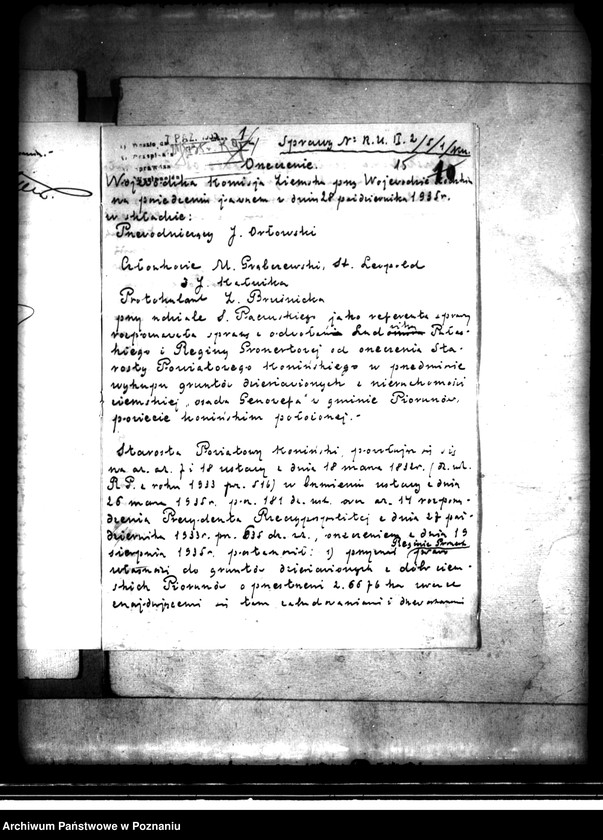 Sprawy Nr R.U. I. 2/5/1/
15
10
Orzeczenie.
Wojewódzka Komisja Ziemska przy Wojewodzie Łódzkim
na posiedzeniu jawnem z dnia 28 października 1935 r.
w składzie:
Przewodniczący J. Orłowski
Członkowie M. Grabczewski, St. Leopold
i J. Kałużka
Protokulant Z. Bruśnicka
przy udziale S. Pacuskiego jako referenta sprawy
rozpoznawała sprawę z odwołania
skiego i Reginy Gronertowej od orzeczenia Sta-
rosty Powiatowego Konińskiego w przedmiocie
wykupu gruntów dzierżawionych z nieruchomości
ziemskiej „osada Genowefa” w gminie Piorunów,
powiecie konińskim położonej. -
Starosta Powiatowy Koniński, powołując się
na ar. ar. 7 i 18 ustawy z dnia 18 marca 1932 r. (Dz. Ust.
R.P. z roku 1933 poz. 516) w brzmieniu ustawy z dnia
26 marca 1935 r. poz. 181 dz. ust. oraz ar. 14 rozporzą-
dzenia Prezydenta Rzeczypospolitej z dnia 27 paź-
dziernika 1933 r. poz. 635 dz. ust., orzeczeniem z dnia 19
sierpnia 1935 r. postanowił: 1) przyznać Reginie prawo
własności do gruntów dzierżawionych z dóbr ziem-
skich Piorunów o przestrzeni 2.6676 ha wraz z
znajdującemi się tam zabudowaniami i drzewami
Archiwum Państwowe w Poznaniu